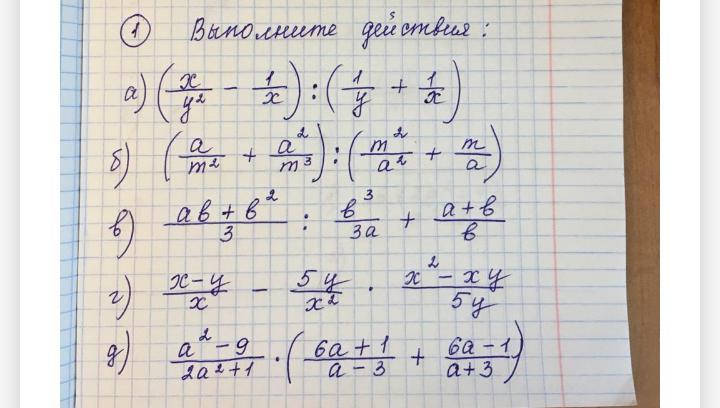 ① Выполните действия:
а) (x/y² − 1/x) : (1/y + 1/x)
б) (a/m² + a²/m³) : (m²/a² + m/a)
в) (ав + в²)/3 : в³/3а + (а + в)/в
г) (x − y)/x − 5y/x² · (x² − xy)/5y
д) (a² − 9)/(2a² + 1) · ((6a + 1)/(a − 3) + (6a − 1)/(a + 3))